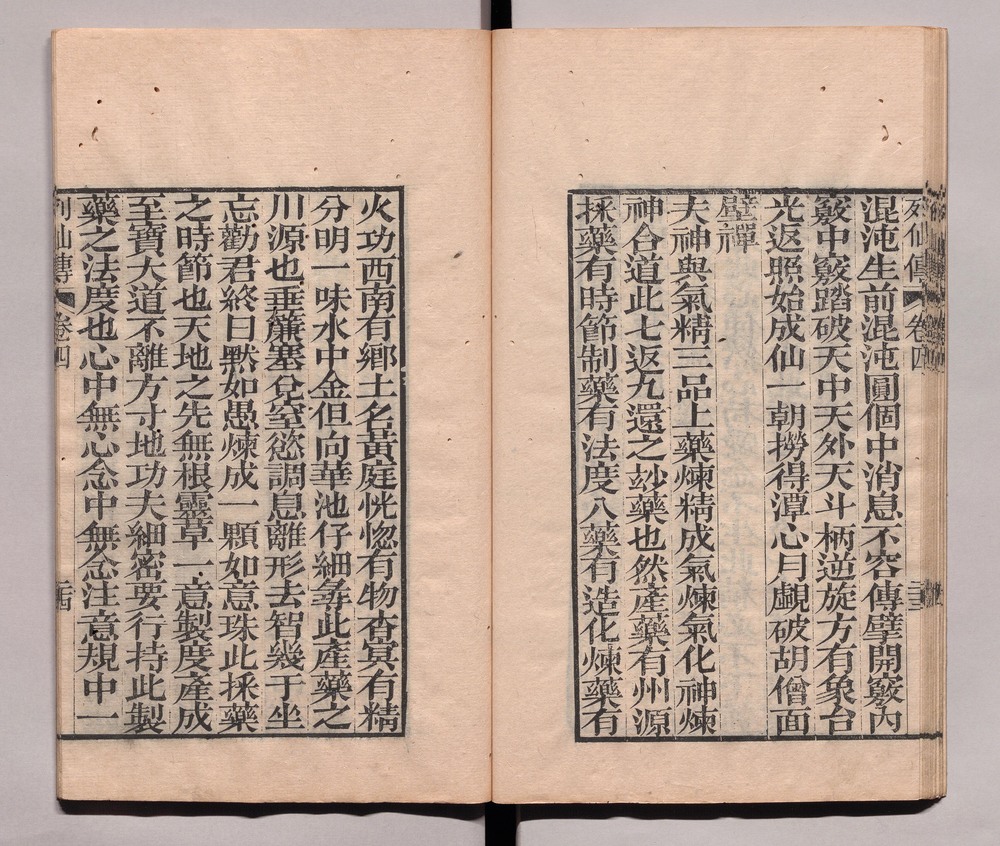 列仙傳 卷四 二十三
混沌生前混沌圓個中消息不容傳擘開竅內
竅中竅踏破天中天外天斗柄逆旋方有象台
光返照始成仙一朝撈得潭心月覷破胡僧面
壁禪
夫神與氣精三品上藥煉精成氣煉氣化神煉
神合道此七返九還之玅藥也然產藥有州源
採藥有時節制藥有法度八藥有造化煉藥有
火功西南有鄉土名黃庭恍惚有物杳冥有精
分明一味水中金但向華池仔細尋此產藥之
川源也垂簾塞兌窒慾調息離形去智幾于坐
忘勸君終日默如愚煉成一顆如意珠此採藥
之時節也天地之先無根靈草一意製度產成
至寶大道不離方寸地功夫細密要行持此製
藥之法度也心中無心念中無念注意規中一
列仙傳 卷四 二十四